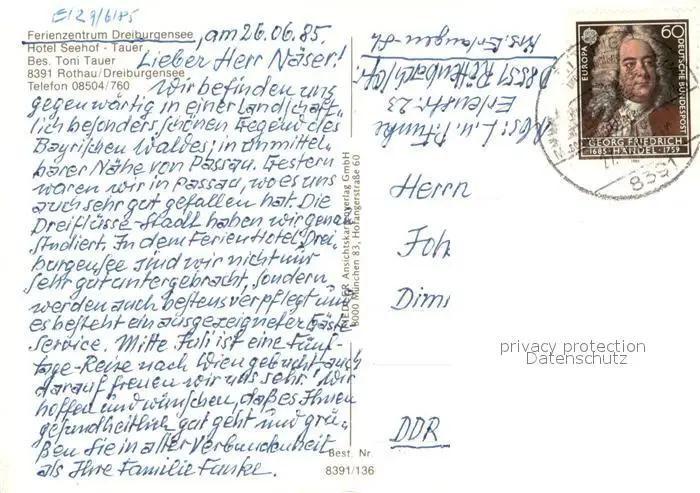 E/29/6/85
Ferienzentrum Dreiburgensee
Hotel Seehof - Tauer
Bes. Toni Tauer
8391 Rothau/Dreiburgensee
Telefon 08504/760
, am 26.06.85.
Lieber Herr Näser!
Wir befinden uns
gegenwärtig in einer landschaft-
lich besonders schönen Gegend des
Bayrischen Waldes, in unmittel-
barer Nähe von Passau. Gestern
waren wir in Passau, wo es uns
auch sehr gut gefallen hat. Die
Dreiflüsse-Stadt haben wir genau
studiert. In dem Ferien Hotel Drei-
burgensee sind wir nicht nur
sehr gut untergebracht, sondern
werden auch bestens verpflegt und
es besteht ein ausgezeigneter Gäste-
service. Mitte Juli ist eine Fünf-
tage-Reise nach Wien gebucht, auch
darauf freuen wir uns sehr. Wir
hoffen und wünschen, daß es Ihnen
gesundheitlich gut geht und grü-
ßen Sie in alter Verbundenheit
als Ihre Familie Funke.
MEDLER Ansichtskartenverlag GmbH
8000 München 83, Hofangerstraße 60
Best. Nr.
8391/136
Abs: L. u. P. Funke
Erlenstr. 23
D 8551 Röttenbach
Krs. Erlangen
EUROPA
60
DEUTSCHE BUNDESPOST
GEORG FRIEDRICH
1685 HÄNDEL 1759
8391
Herrn
Joh
Dimi
DDR
privacy protection
Datenschutz